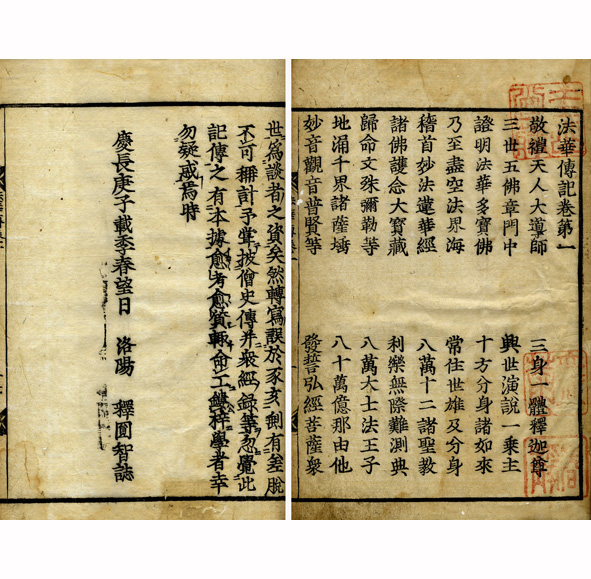 法華傳記卷第一
敬禮天人大導師 三身一體釋迦尊
三世五佛章門中 興世演說一乘主
證明法華多寶佛 十方分身諸如來
乃至盡空法界海 常住世雄及分身
稽首妙法蓮華經 八萬十二諸聖教
諸佛護念大寶藏 利樂無際難測典
歸命文殊彌勒等 八萬大士法王子
地涌千界諸薩埵 八十萬億那由他
妙音觀音普賢等 發誓弘經菩薩衆
世爲談者之資矣然轉寫誤於豕亥有差脫
不可稱計予披僧史傳并衆經錄等忽覺此
記傳之有本據愈考愈質輙命工鏤梓學者幸
勿疑或焉時
慶長庚子載季春望日 洛陽 釋圓智誌